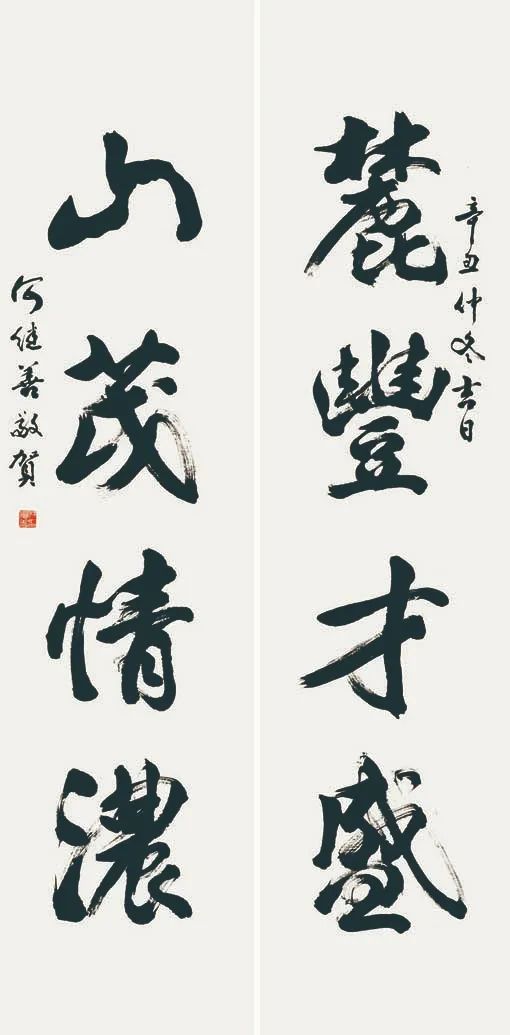 辛丑仲冬吉日
麓豐才盛
山茂情濃
何继善敬贺